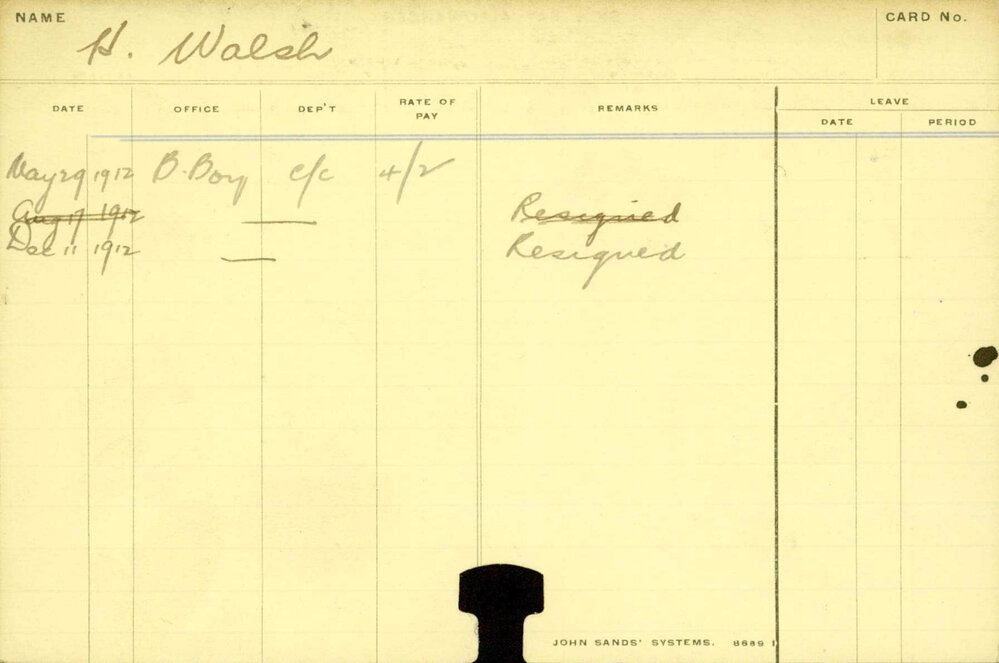 NAME
H. Walsh
CARD No.
DATE OFFICE DEP'T RATE OF PAY REMARKS LEAVE
DATE PERIOD
May 29 1912 B. Boy c/c 4/2
Aug 17 1912 — Resigned
Dec 11 1912 — Resigned
JOHN SANDS' SYSTEMS. 8689 1